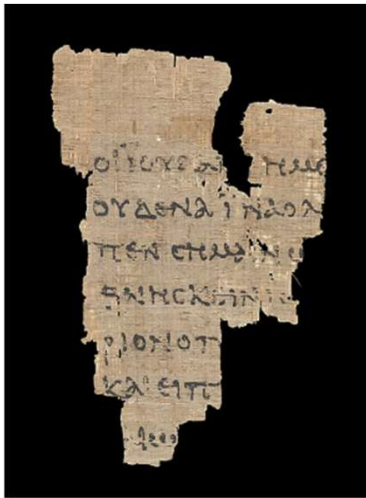 ΟΙΙΟΥΔΑΙ ΗΜ
ΟΥΔΕΝΑΪΝΑΟΛ
ΠΕΝϹΗΜΑΙΝΩ
ΘΝΗϹΚΕΙΝΙϹ
ΡΙΟΝΟΠ
ΚΑΙΕΙΠ